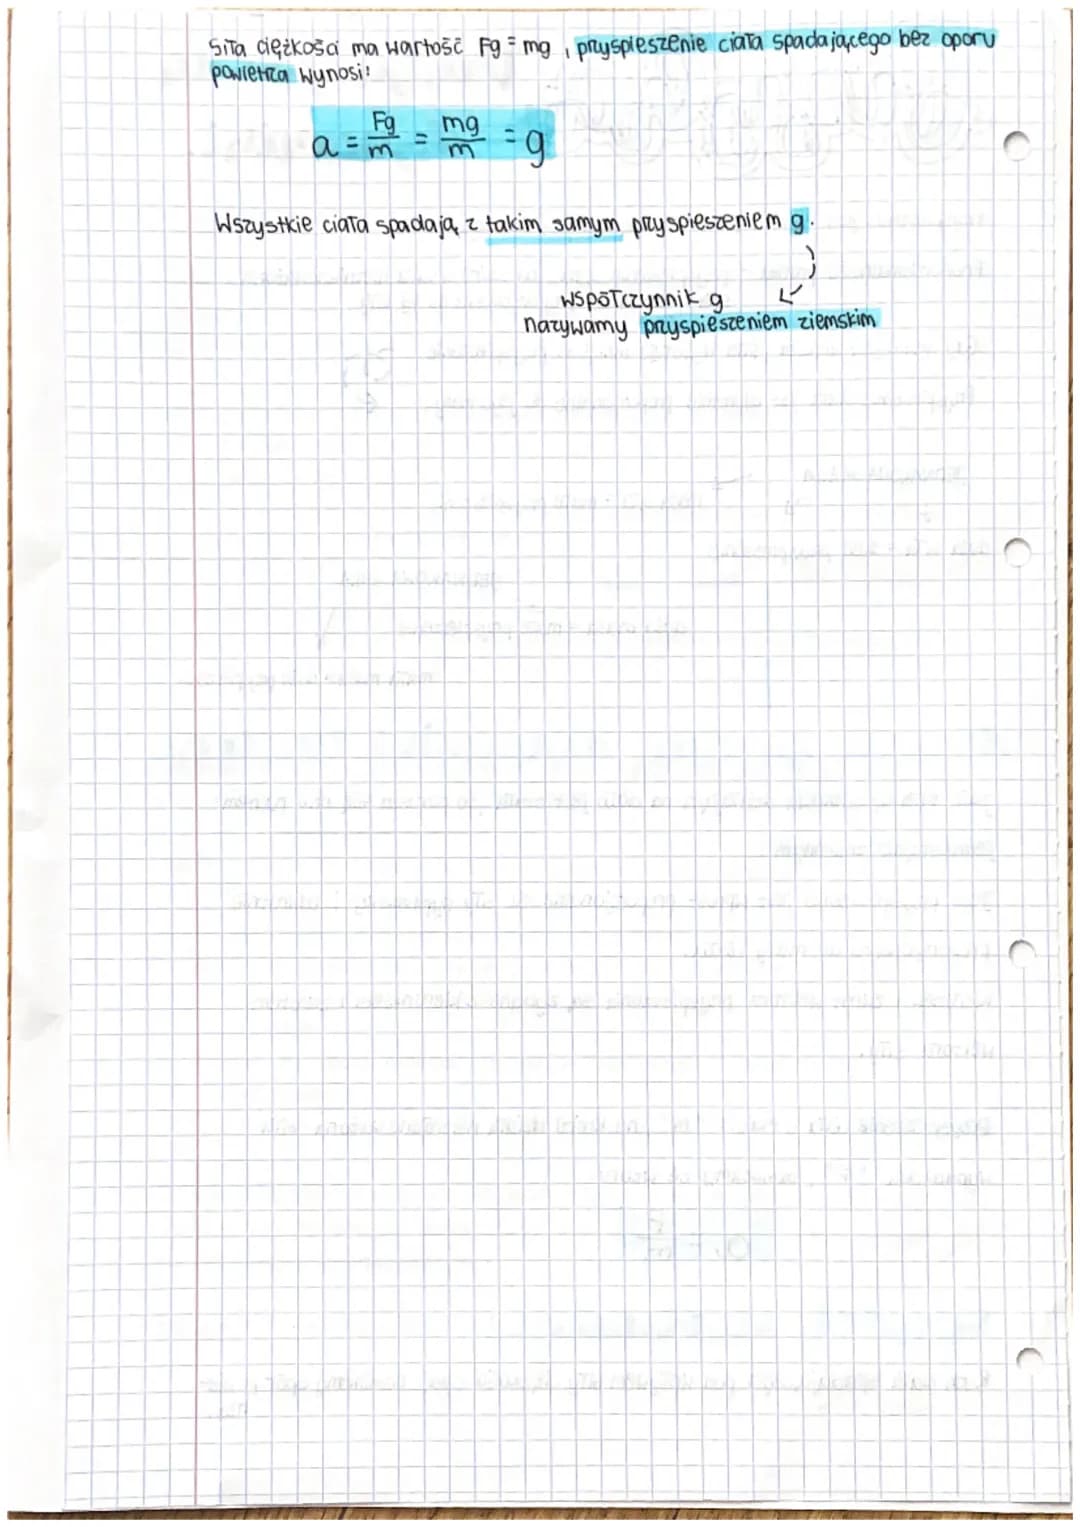 Siła ciężkości ma wartość Fg = mg , przyspieszenie ciała spadającego bez oporu
powietrza wynosi:
a = Fg/m = mg/m = g
Wszystkie ciała spadają z takim samym przyspieszeniem g.
współczynnik g
nazywamy przyspieszeniem ziemskim